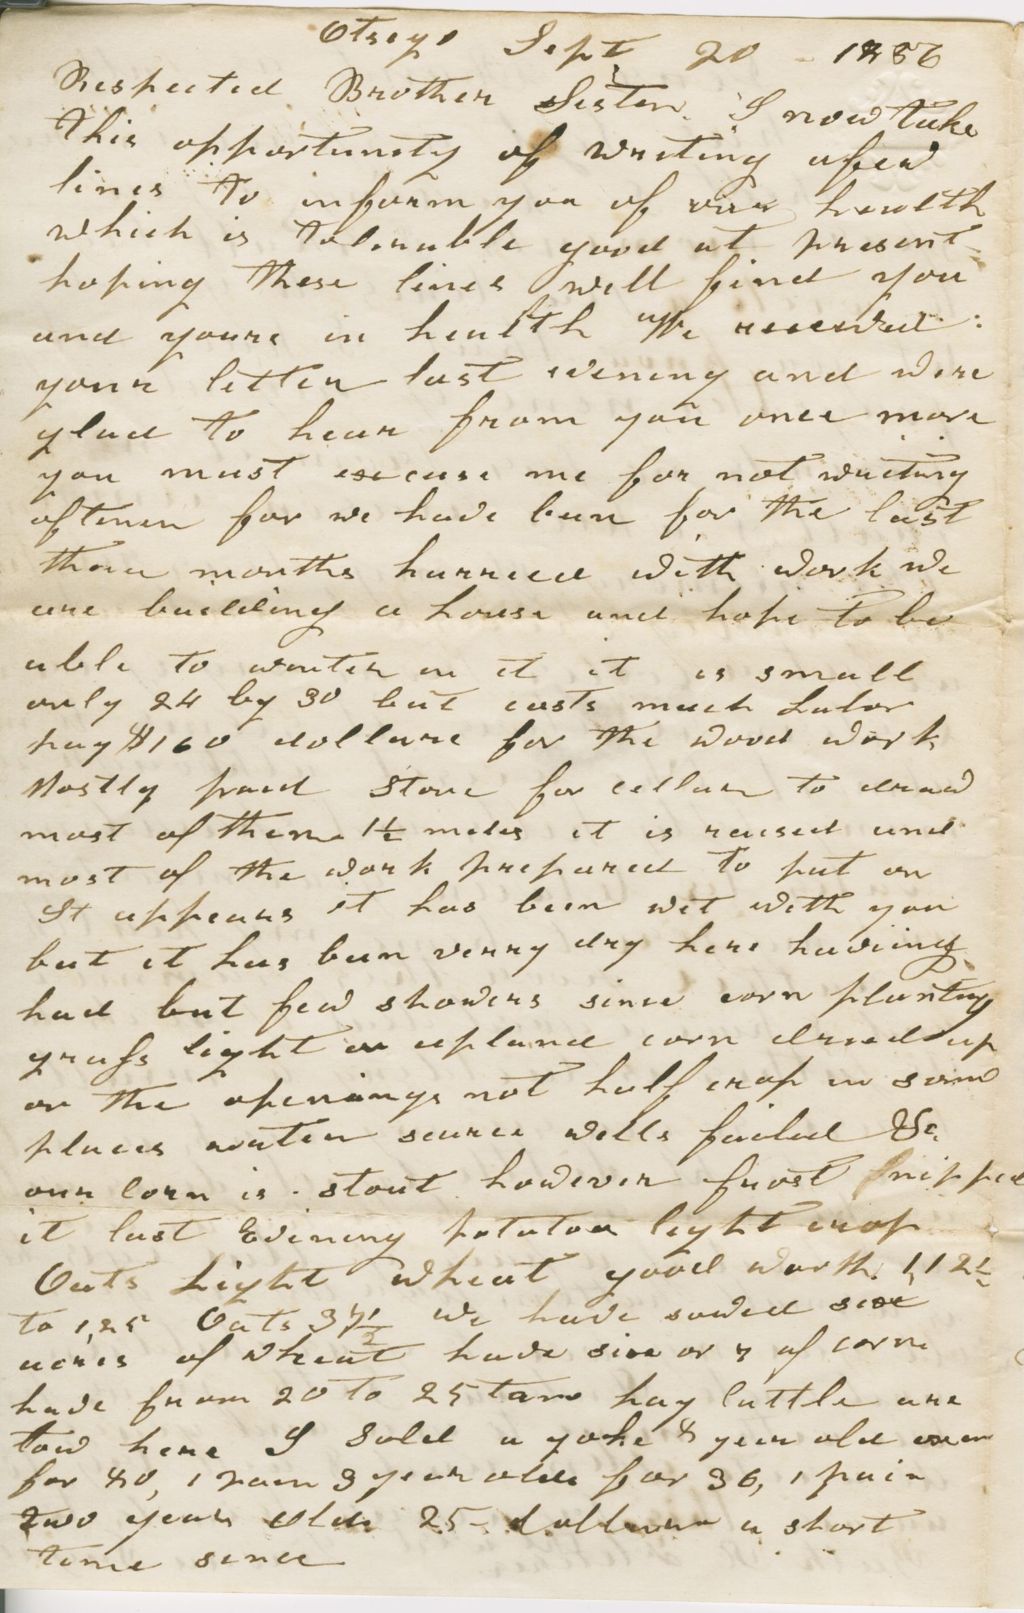 Otsego Sept 20 - 1856
Respected Brother Sister. I now take
this opportunity of writing a few
lines to inform you of our health
which is tolerable good at present
hoping these lines will find you
and yours in health We received
your letter last evening and were
glad to hear from you once more
you must excuse me for not writing
oftener for we have been for the last
three months hurried with work we
are building a house and hope to be
able to winter in it it is small
only 24 by 30 but costs much Labor
pay $160 dollars for the wood work
Mostly paid Stone for cellar to draw
most of them 1½ miles it is raised and
most of the work prepared to put on
It appears it has been wet with you
but it has been verry dry here haveing
had but few showers since corn planting
grass light on upland corn dried up
on the openings not half crop in some
places water scarce wells failed &c.
our corn is stout however frost nipped
it last Evening potatoes light crop
Oats Light wheat good worth 1,12½
to 1,25 Oats 37½ we have sowed six
acres of wheat have six or 7 of corn
have from 20 to 25 tons hay Cattle are
low here I Sold a yoke 8 year old oxen
for 80, 1 pair 3 year olds for 36, 1 pair
two years olds 25 - dollars a short
time since